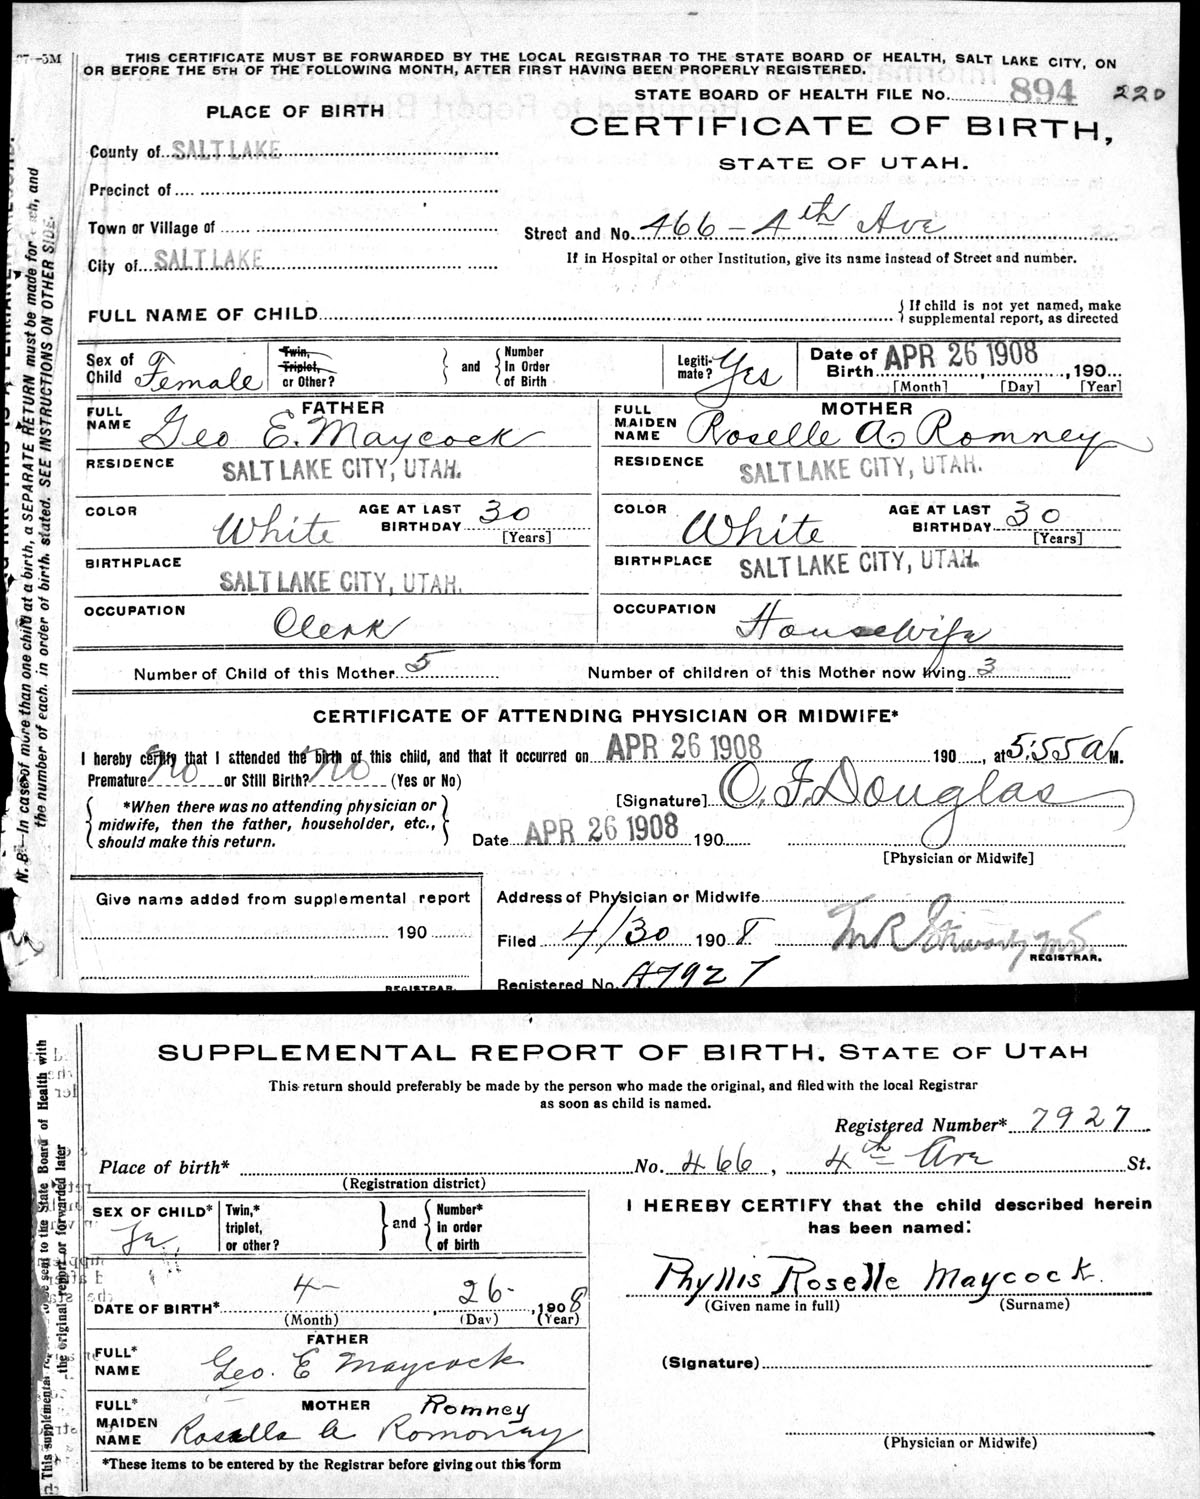 THIS CERTIFICATE MUST BE FORWARDED BY THE LOCAL REGISTRAR TO THE STATE BOARD OF HEALTH, SALT LAKE CITY, ON
OR BEFORE THE 5TH OF THE FOLLOWING MONTH, AFTER FIRST HAVING BEEN PROPERLY REGISTERED.
STATE BOARD OF HEALTH FILE No. 894 220
PLACE OF BIRTH
CERTIFICATE OF BIRTH,
STATE OF UTAH.
County of SALT LAKE
Precinct of
Town or Village of
Street and No. 466 - 4th Ave
City of SALT LAKE
If in Hospital or other Institution, give its name instead of Street and number.
FULL NAME OF CHILD
If child is not yet named, make
supplemental report, as directed
Sex of Child Female
Twin, Triplet, or Other?
and
Number In Order of Birth
Legiti-mate? Yes
Date of Birth APR 26 1908, 190
[Month] [Day] [Year]
FATHER
FULL NAME Geo E. Maycock
MOTHER
FULL MAIDEN NAME Roselle A. Romney
RESIDENCE SALT LAKE CITY, UTAH.
RESIDENCE SALT LAKE CITY, UTAH.
COLOR White
AGE AT LAST BIRTHDAY 30
[Years]
COLOR White
AGE AT LAST BIRTHDAY 30
[Years]
BIRTHPLACE SALT LAKE CITY, UTAH.
BIRTHPLACE SALT LAKE CITY, UTAH.
OCCUPATION Clerk
OCCUPATION Housewife
Number of Child of this Mother 5
Number of children of this Mother now living 3
CERTIFICATE OF ATTENDING PHYSICIAN OR MIDWIFE*
I hereby certify that I attended the birth of this child, and that it occurred on APR 26 1908 190 , at 5:55 a M.
Premature no or Still Birth? no (Yes or No)
*When there was no attending physician or
midwife, then the father, householder, etc.,
should make this return.
[Signature] O. J. Douglas
Date APR 26 1908 190
[Physician or Midwife]
Give name added from supplemental report
190
REGISTRAR.
Address of Physician or Midwife
Filed 4/30 1908
REGISTRAR.
Registered No. A7927
N. B.—In case of more than one child at a birth, a SEPARATE RETURN must be made for each, and
the number of each, in order of birth, stated. SEE INSTRUCTIONS ON OTHER SIDE.
SUPPLEMENTAL REPORT OF BIRTH, STATE OF UTAH
This return should preferably be made by the person who made the original, and filed with the local Registrar
as soon as child is named.
Registered Number* 7927
Place of birth* No. 466, 4th Ave St.
(Registration district)
SEX OF CHILD* Fe.
Twin,* triplet, or other?
and
Number* In order of birth
I HEREBY CERTIFY that the child described herein
has been named:
Phyllis Roselle Maycock.
(Given name in full) (Surname)
DATE OF BIRTH* 4 - , 26 - , 1908
(Month) (Day) (Year)
FATHER
FULL* NAME Geo. E Maycock
(Signature)
MOTHER Romney
FULL* MAIDEN NAME Rosella A Romoney
(Physician or Midwife)
*These items to be entered by the Registrar before giving out this form